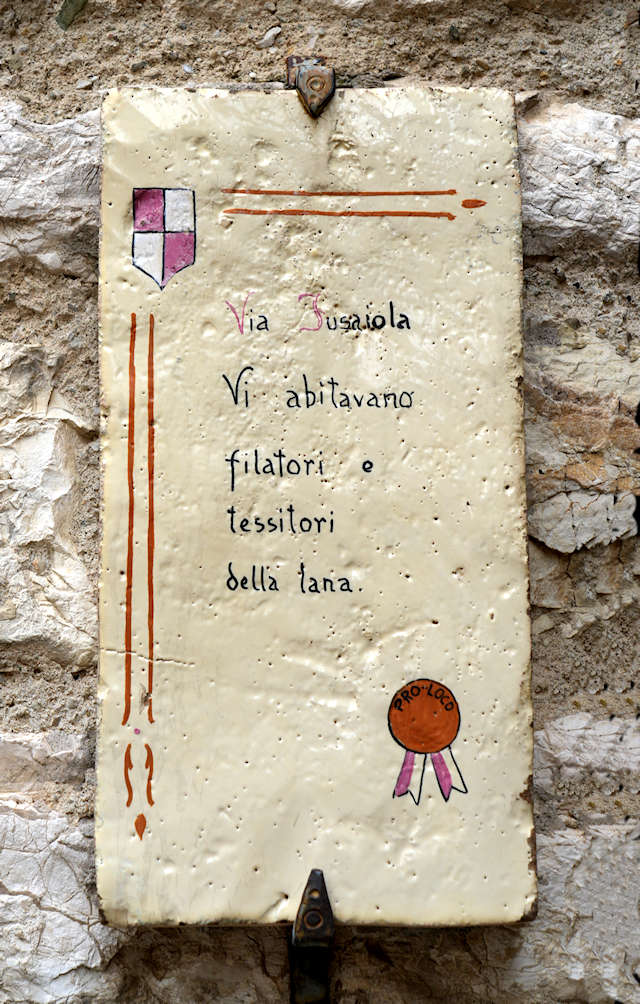 Via Fusaiola
Vi abitavano
filatori e
tessitori
della lana.
PRO-LOCO